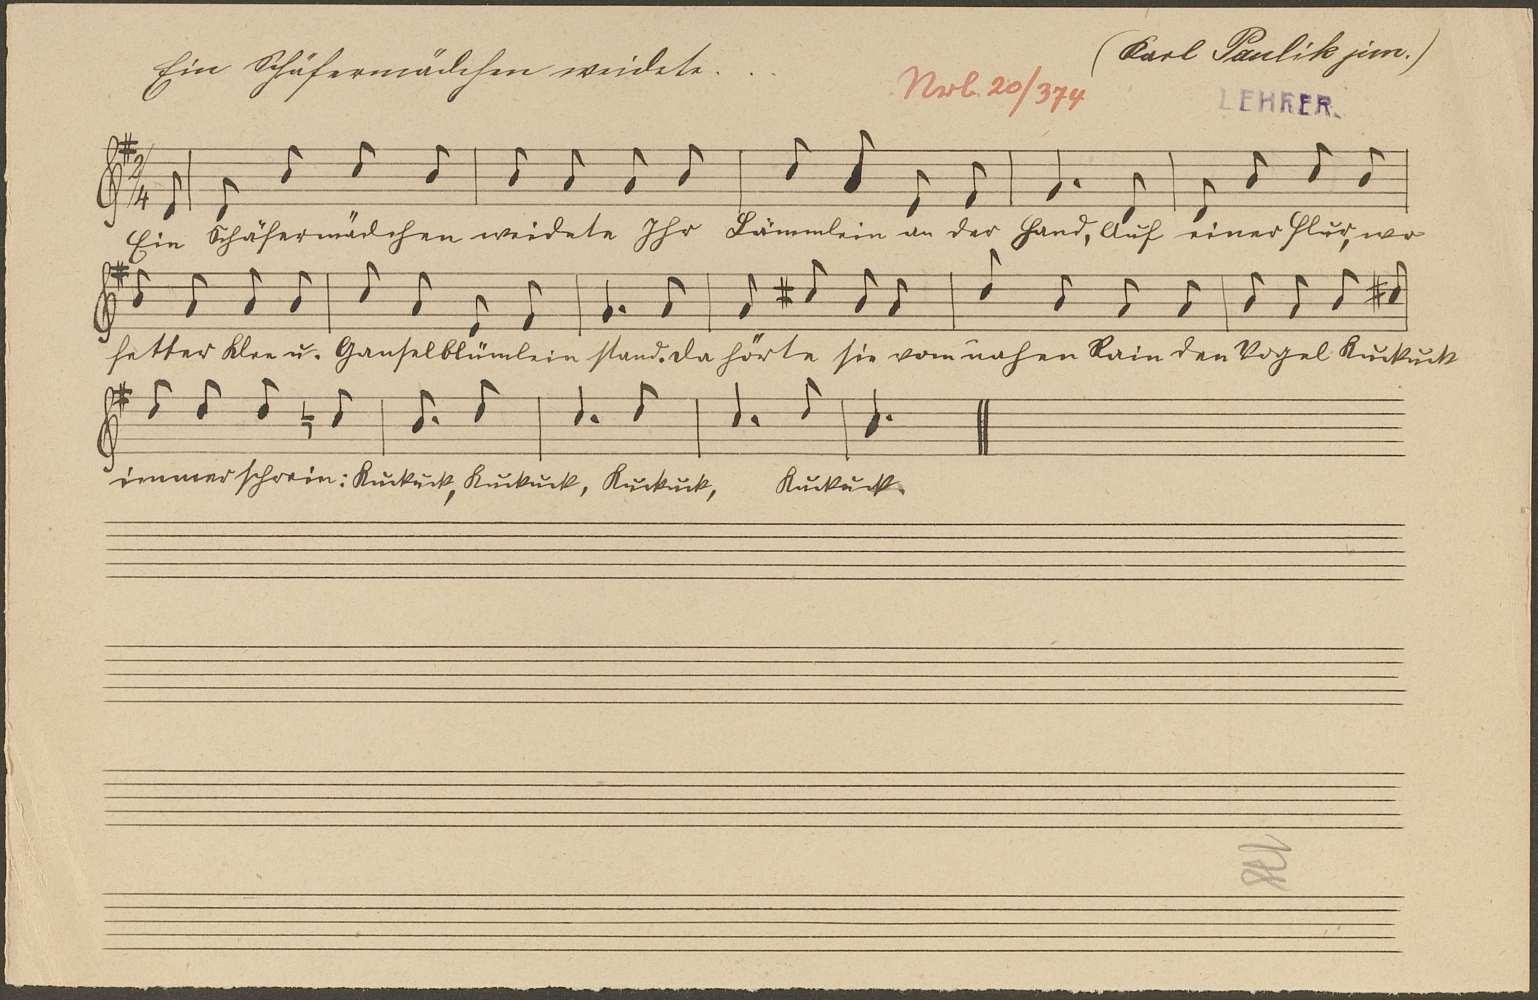 Ein Schäfermädchen weidete. . .
(Karl Paulik jun.)
Nrb. 20/374
LEHRER.
2/4
Ein Schäfermädchen weidete Ihr Lämmlein an der Hand, Auf einer Flur, wo
fetter Klee u. Ganselblümlein stand. Da hörte sie vom nahen Rain den Vogel Kuckuck
immer schrein: Kuckuck, Kuckuck, Kuckuck, Kuckuck.